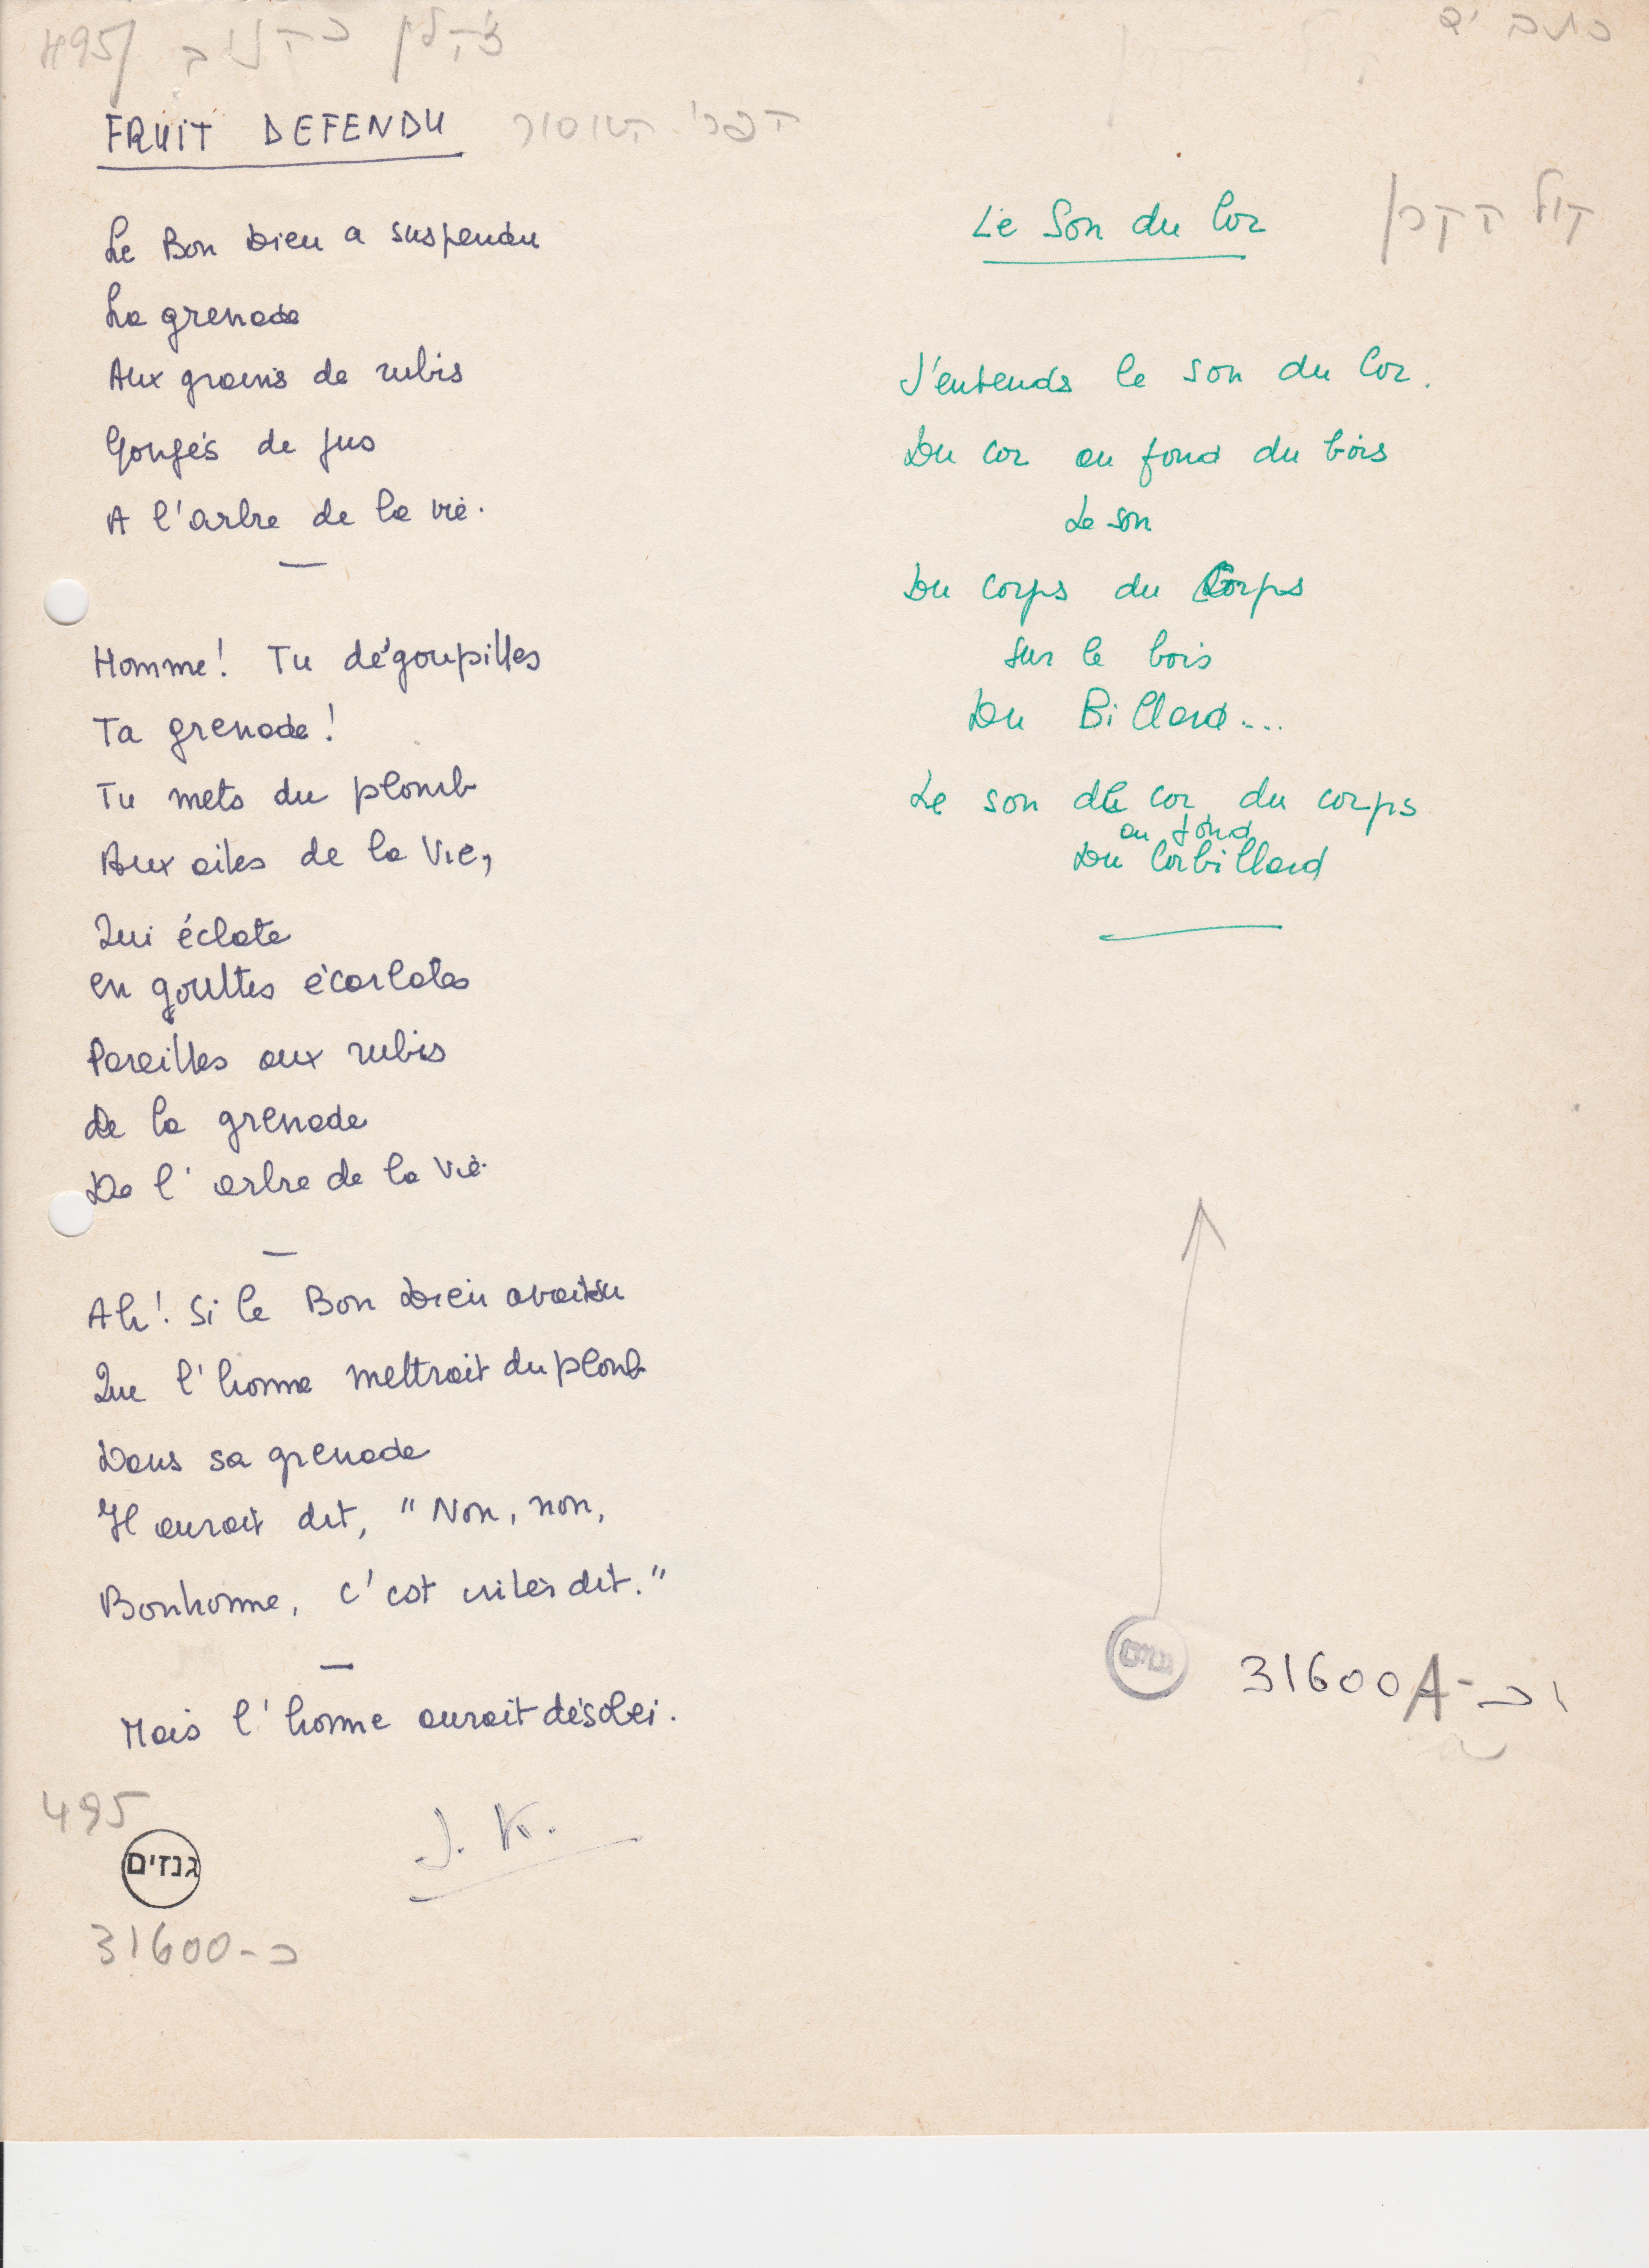 495/
כתב יד
FRUIT DEFENDU הפרי האסור
Le Bon Dieu a suspendu
La grenade
Aux grains de rubis
Gongés de jus
A l'arbre de la vie.
—
Homme! Tu dégoupilles
Ta grenade!
Tu mets du plomb
Aux ailes de la Vie,
Qui éclate
en gouttes écarlates
Pareilles aux rubis
De la grenade
De l'arbre de la Vie.
—
Ah! Si le Bon Dieu avait su
Que l'homme mettrait du plomb
Dans sa grenade
Il aurait dit, "Non, non,
Bonhomme, c'est interdit."
—
Mais l'homme aurait désobéi.
J. K.
495
גנזים
31600-כ
Le Son du Cor קול הקרן
J'entends le son du Cor.
Du Cor au fond du bois
Le son
Du corps du Corps
Sur le bois
Du Billard...
Le son de cor du corps
au fond
Du Corbillard
גנזים
31600A-כ